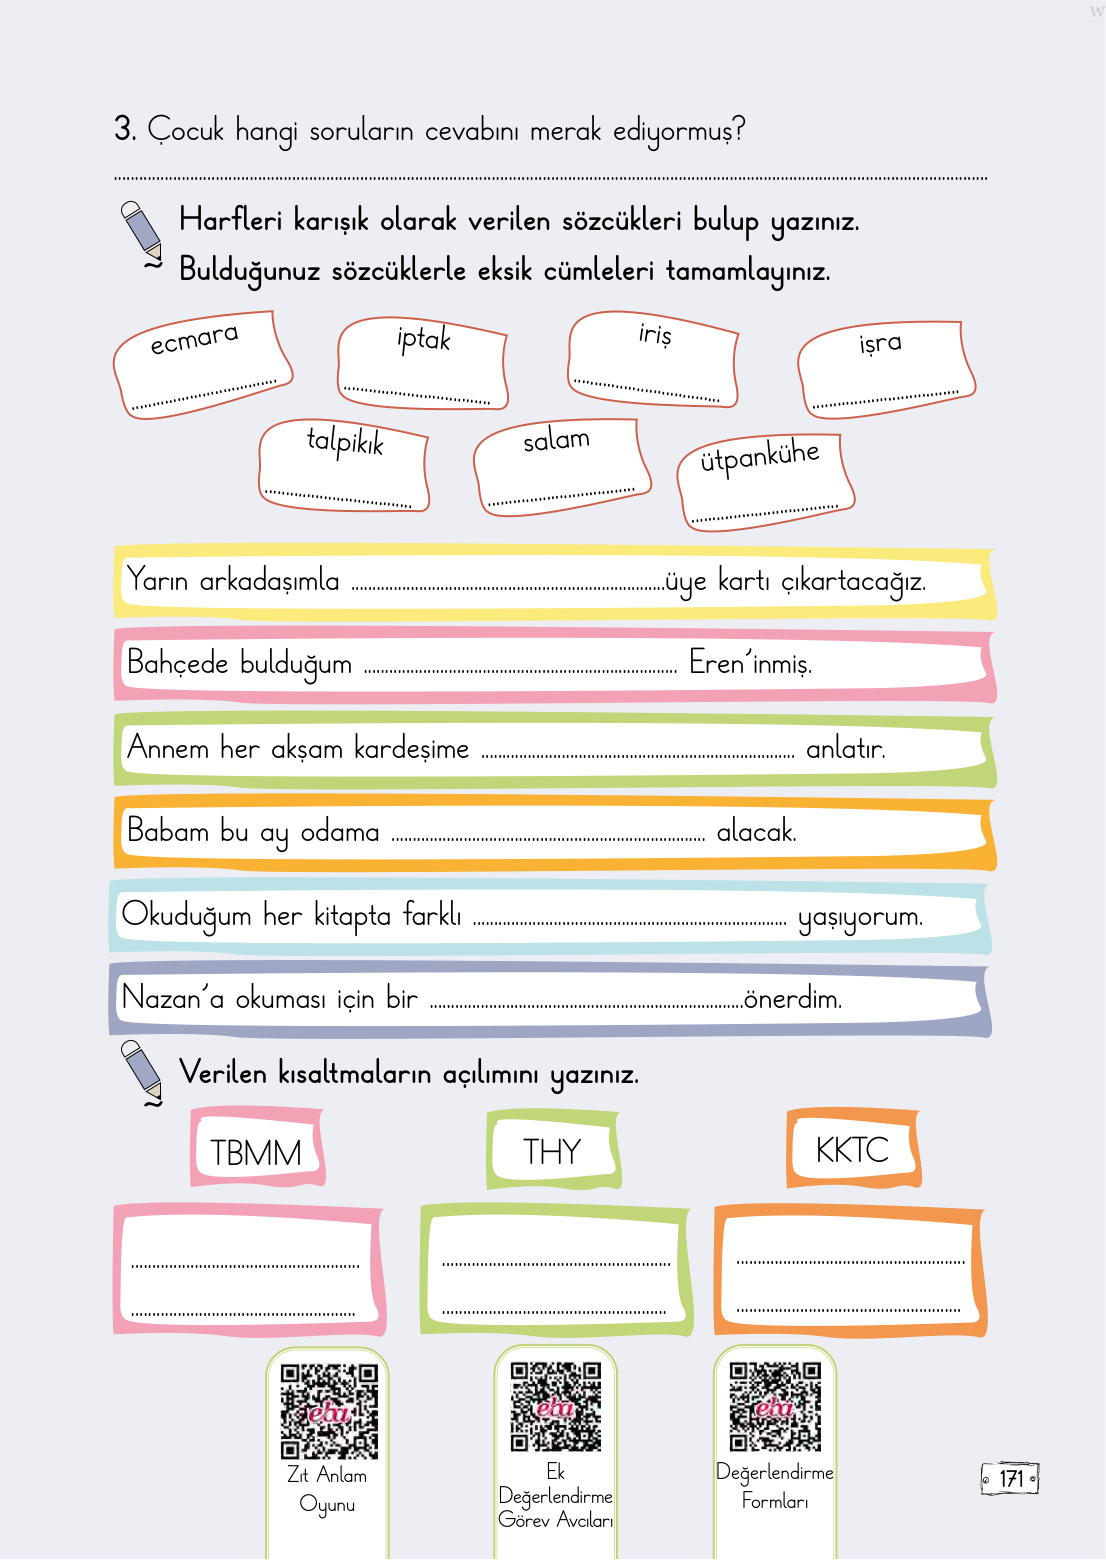 w
3. Çocuk hangi soruların cevabını merak ediyormuş?
Harfleri karışık olarak verilen sözcükleri bulup yazınız.
Bulduğunuz sözcüklerle eksik cümleleri tamamlayınız.
ecmara
iptak
iriş
işra
talpikık
salam
ütpankühe
Yarın arkadaşımla ........................................ üye kartı çıkartacağız.
Bahçede bulduğum ........................................ Eren'inmiş.
Annem her akşam kardeşime ........................................ anlatır.
Babam bu ay odama ........................................ alacak.
Okuduğum her kitapta farklı ........................................ yaşıyorum.
Nazan'a okuması için bir ........................................ önerdim.
Verilen kısaltmaların açılımını yazınız.
TBMM
THY
KKTC
eba
eba
eba
Zıt Anlam
Oyunu
Ek
Değerlendirme
Görev Avcıları
Değerlendirme
Formları
171